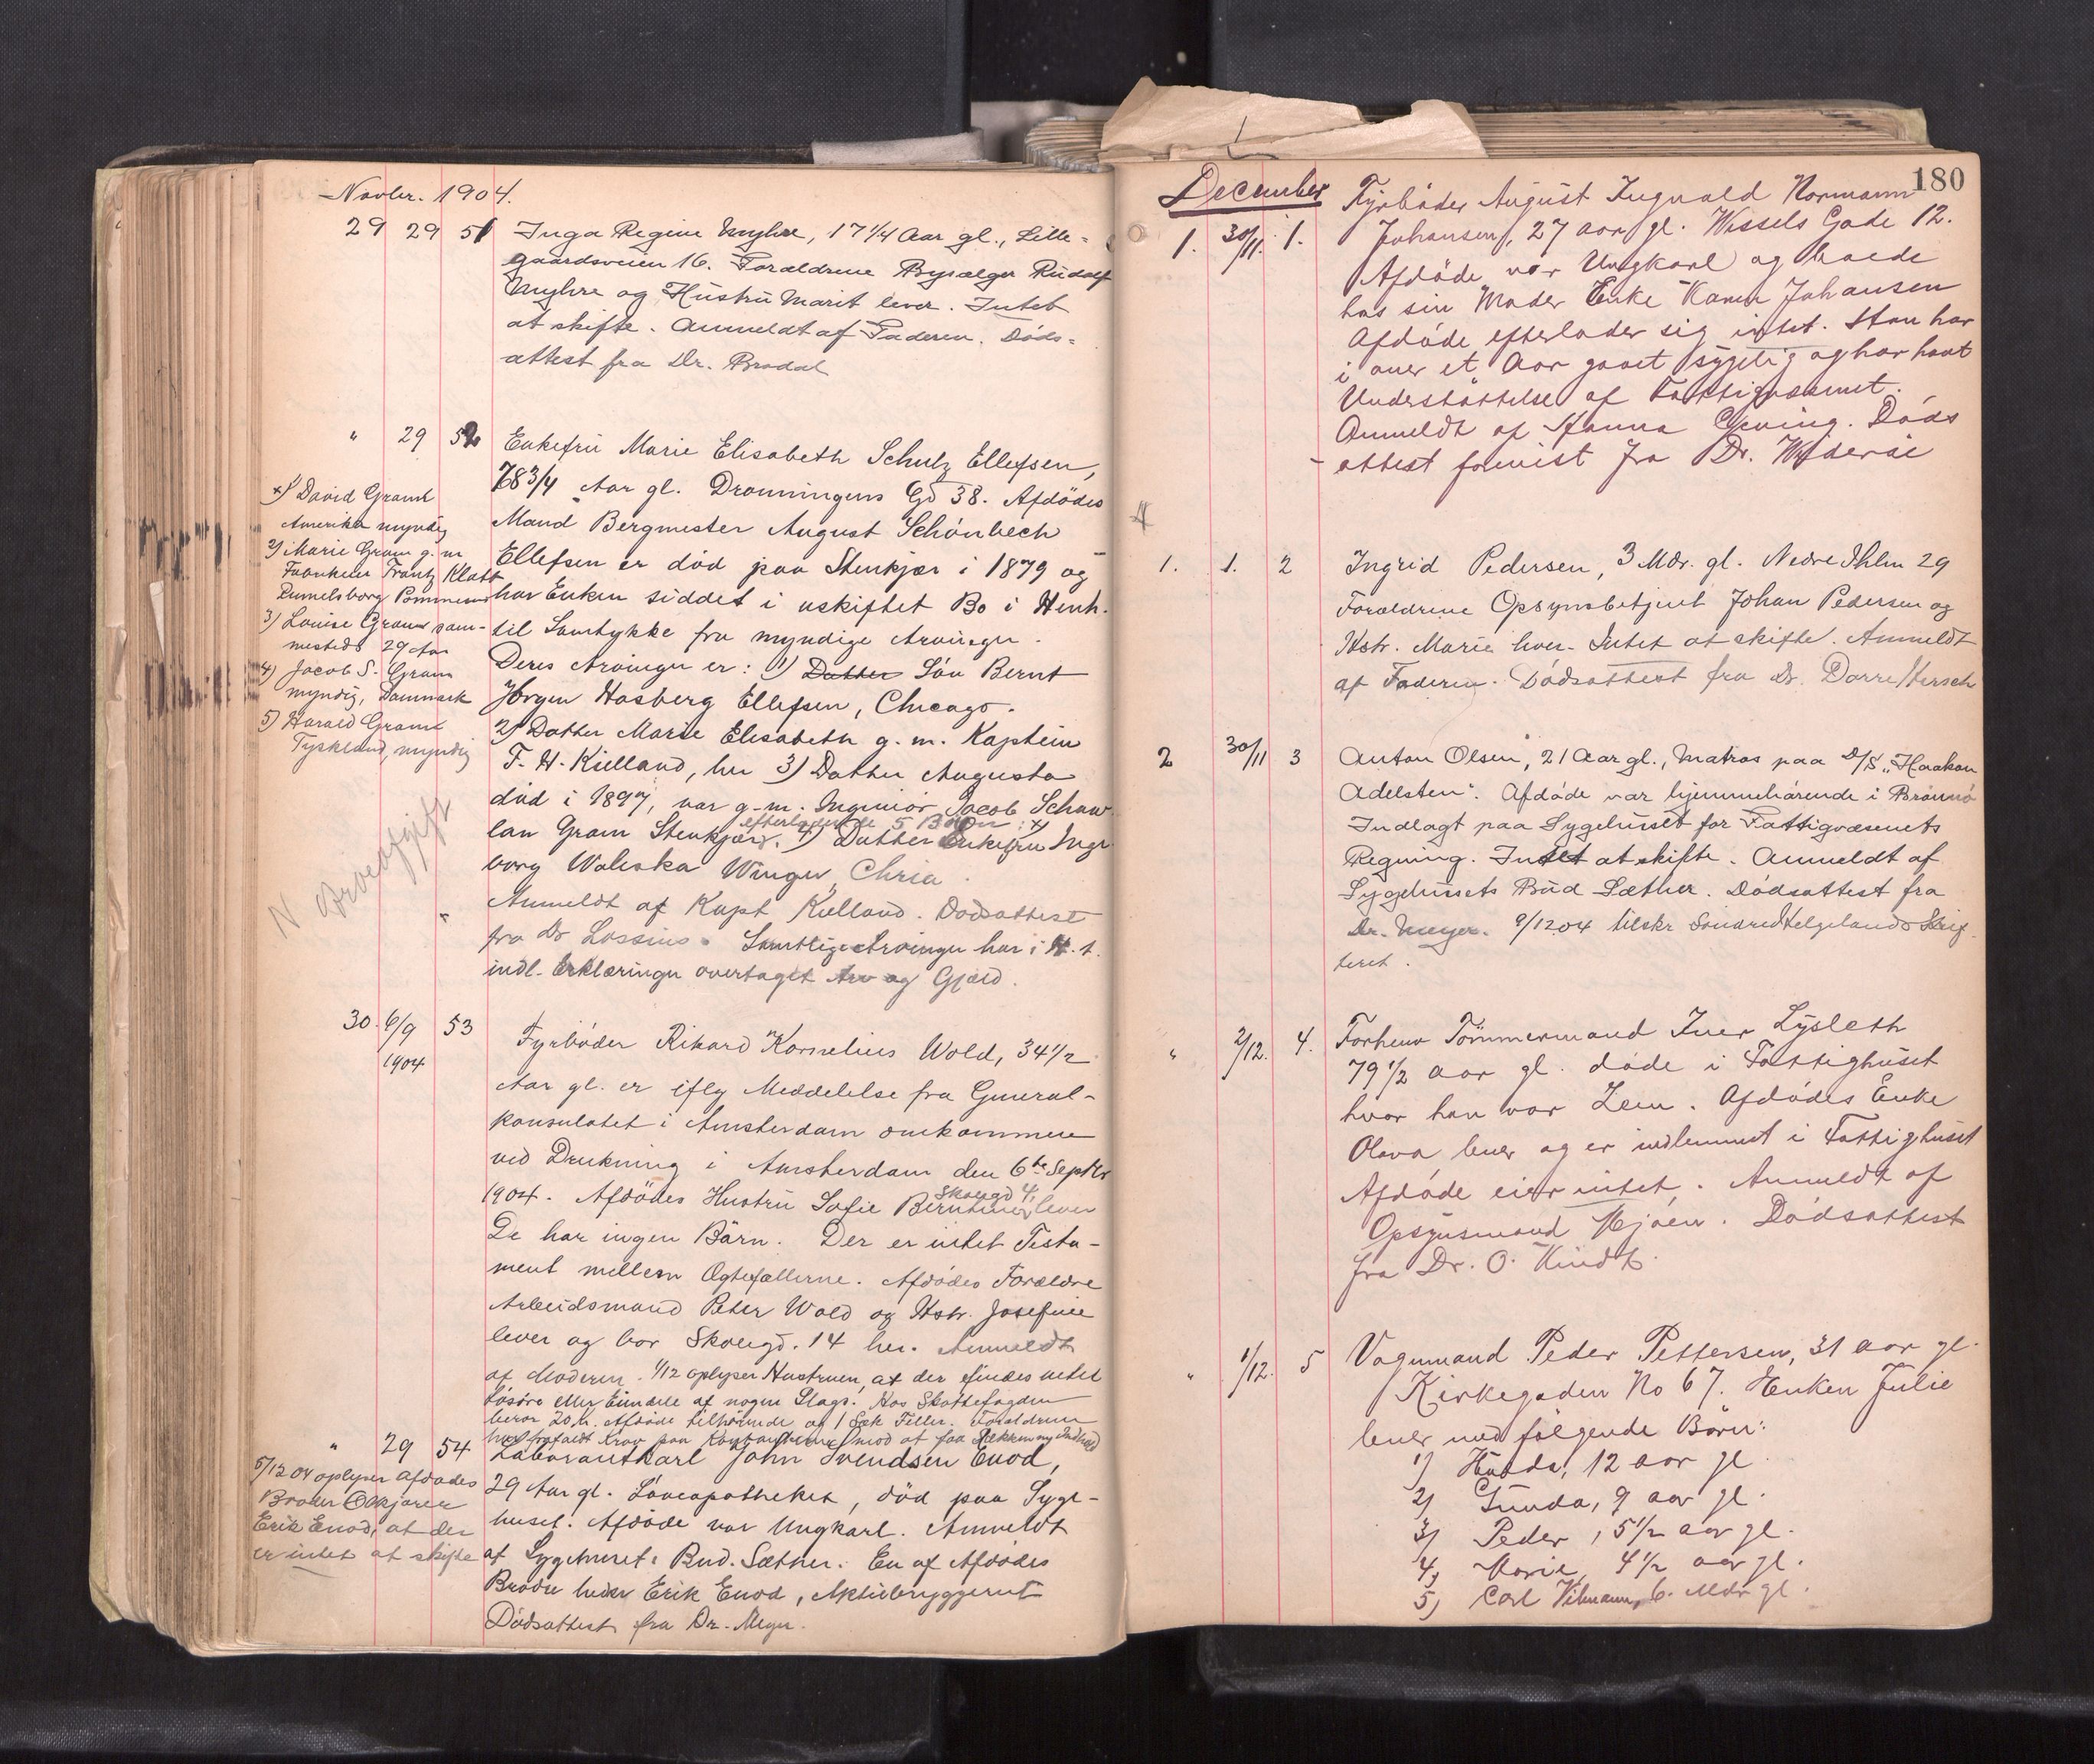 Novbr. 1904.
29 29 51 Inga Regine Myhre, 17 1/4 Aar gl., Lille=
gaardsveien 16. Forældrene Bysælger Rudolf
Myhre og Hustru Marit lever. Intet
at skifte. Anmeldt af Faderen. Døds=
attest fra Dr. Brodal
" 29 52 Enkefru Marie Elisabeth Schulz Ellefsen,
78 3/4 Aar gl. Dronningens Gd 38. Afdödes
Mand Bergmester August Schönbech
Ellefsen er död paa Stenkjær i 1879 og
har Enken siddet i uskiftet Bo i Henh.
til Samtykke fra myndige Arvinger.
Deres Arvinger er: 1) Datter Sön Bernt
Jörgen Hasberg Ellefsen, Chicago.
2) Datter Marie Elisabeth g. m. Kaptein
F. H. Kielland, her 3) Datter Augusta
död i 1897, var g. m. Ingeniör Jacob Schaw
efterladende 5 Börn: x)
lan Gram Stenkjær. 4) Datter Enkefru Inge
borg Waleska Winger, Chria.
Anmeldt af Kapt Kielland. Dödsattest
fra Dr Lossius. Samtlige Arvinger har i H. t.
indl. Erklæringer overtaget Arv og Gjæld.
x) 1) David Gram
Amerika myndig
2) Marie Gram g. m
Fabrikeier Frantz Klatt
Rumelsborg Pommern
3) Louise Gram sam-
mesteds 29 Aar
4) Jacob S. Gram
myndig, Danmark
5) Harald Gram
Tyskland, myndig
N Arveafgift
30. 6/9 1904 53 Fyrböder Rikard Kornelius Wold, 34 1/2
Aar gl. er iflg Meddelelse fra General-
konsulatet i Amsterdam omkommen
ved Drukning i Amsterdam den 6te Septbr
Skovgd 4,
1904. Afdödes Hustru Sofie Berntine lever
De har ingen Börn. Der er intet Testa-
ment mellem Ægtefællerne. Afdödes Forældre
Arbeidsmand Peter Wold og Hstr. Josefine
lever og bor Skovgd. 14 her. Anmeldt
af Moderen. 1/12 oplyser Hustruen, at der efindes intet
Lösöre eller Eiendele af nogen Slags. Hos Skattefogden
beror 20 Kr. Afdöde tilhörende og 1 Sæk Filler. Forældrene
har frafaldt Krav paa Kontanterne mod at faa Sækken og Indhold
" 29 54 Laborantkarl John Svendsen Enod,
29 Aar gl. Löveapotheket, död paa Syge-
huset. Afdöde var Ungkarl. Anmeldt
af Sygehusets Bud. Sæther. En af Afdödes
Brödre heder Erik Enod, Aktiebryggeriet
Dödsattest fra Dr. Meyer.
5/12 04 oplyser Afdödes
Broder Ölkjörer
Erik Enod, at der
er intet at skifte
180
December
1. 30/11. 1. Fyrböder August Ingvald Normann
Johansen, 27 aar gl. Wessels Gade 12.
Afdöde var Ungkarl og boede
hos sin Moder Enke Karen Johansen
Afdöde efterlader sig intet. Han har
i over et Aar været sygelig og har havt
Understöttelse af Fattigvæsenet.
Anmeldt af Hanna Döds
attest forevist fra Dr. Wideröe
1. 1. 2 Ingrid Pedersen, 3 Mdr. gl. Nedre Ihlen 29
Forældrene Opsynsbetjent Johan Pedersen og
Hstr. Marie lever. Intet at skifte. Anmeldt
af Faderen. Dödsattest fra Dr. Dorre Hersch
2 30/11 3 Anton Olsen, 21 Aar gl., Matros paa D/S "Haakon
Adelsten". Afdöde var hjemmehörende i Brönnö
Indlagt paa Sygehuset for Fattigvæsenets
Regning. Intet at skifte. Anmeldt af
Sygehusets Bud Sæther. Dödsattest fra
Dr. Meyer. 9/12 04 tilskr Söndre Helgelands Skif
teret.
" 2/12. 4. Forhenv Tömmermand Iver Lysleth
79 1/2 aar gl. döde i Fattighuset
hvor han var Lem. Afdödes Enke
Olava lever og er indlemmet i Fattighuset
Afdöde eier intet. Anmeldt af
Opsynsmand Mjöen. Dödsattest
fra Dr. O. Kindt.
" 1/12. 5 Vognmand Peder Pettersen, 31 aar gl.
Kirkegaden No 67. Enken Julie
lever med fölgende Börn:
1) Hulda, 12 aar gl
2) Gunda, 9 aar gl.
3) Peder, 5 1/2 aar gl.
4) Marie, 4 1/2 aar gl.
5) Carl Vilmann, 6. Mdr gl.